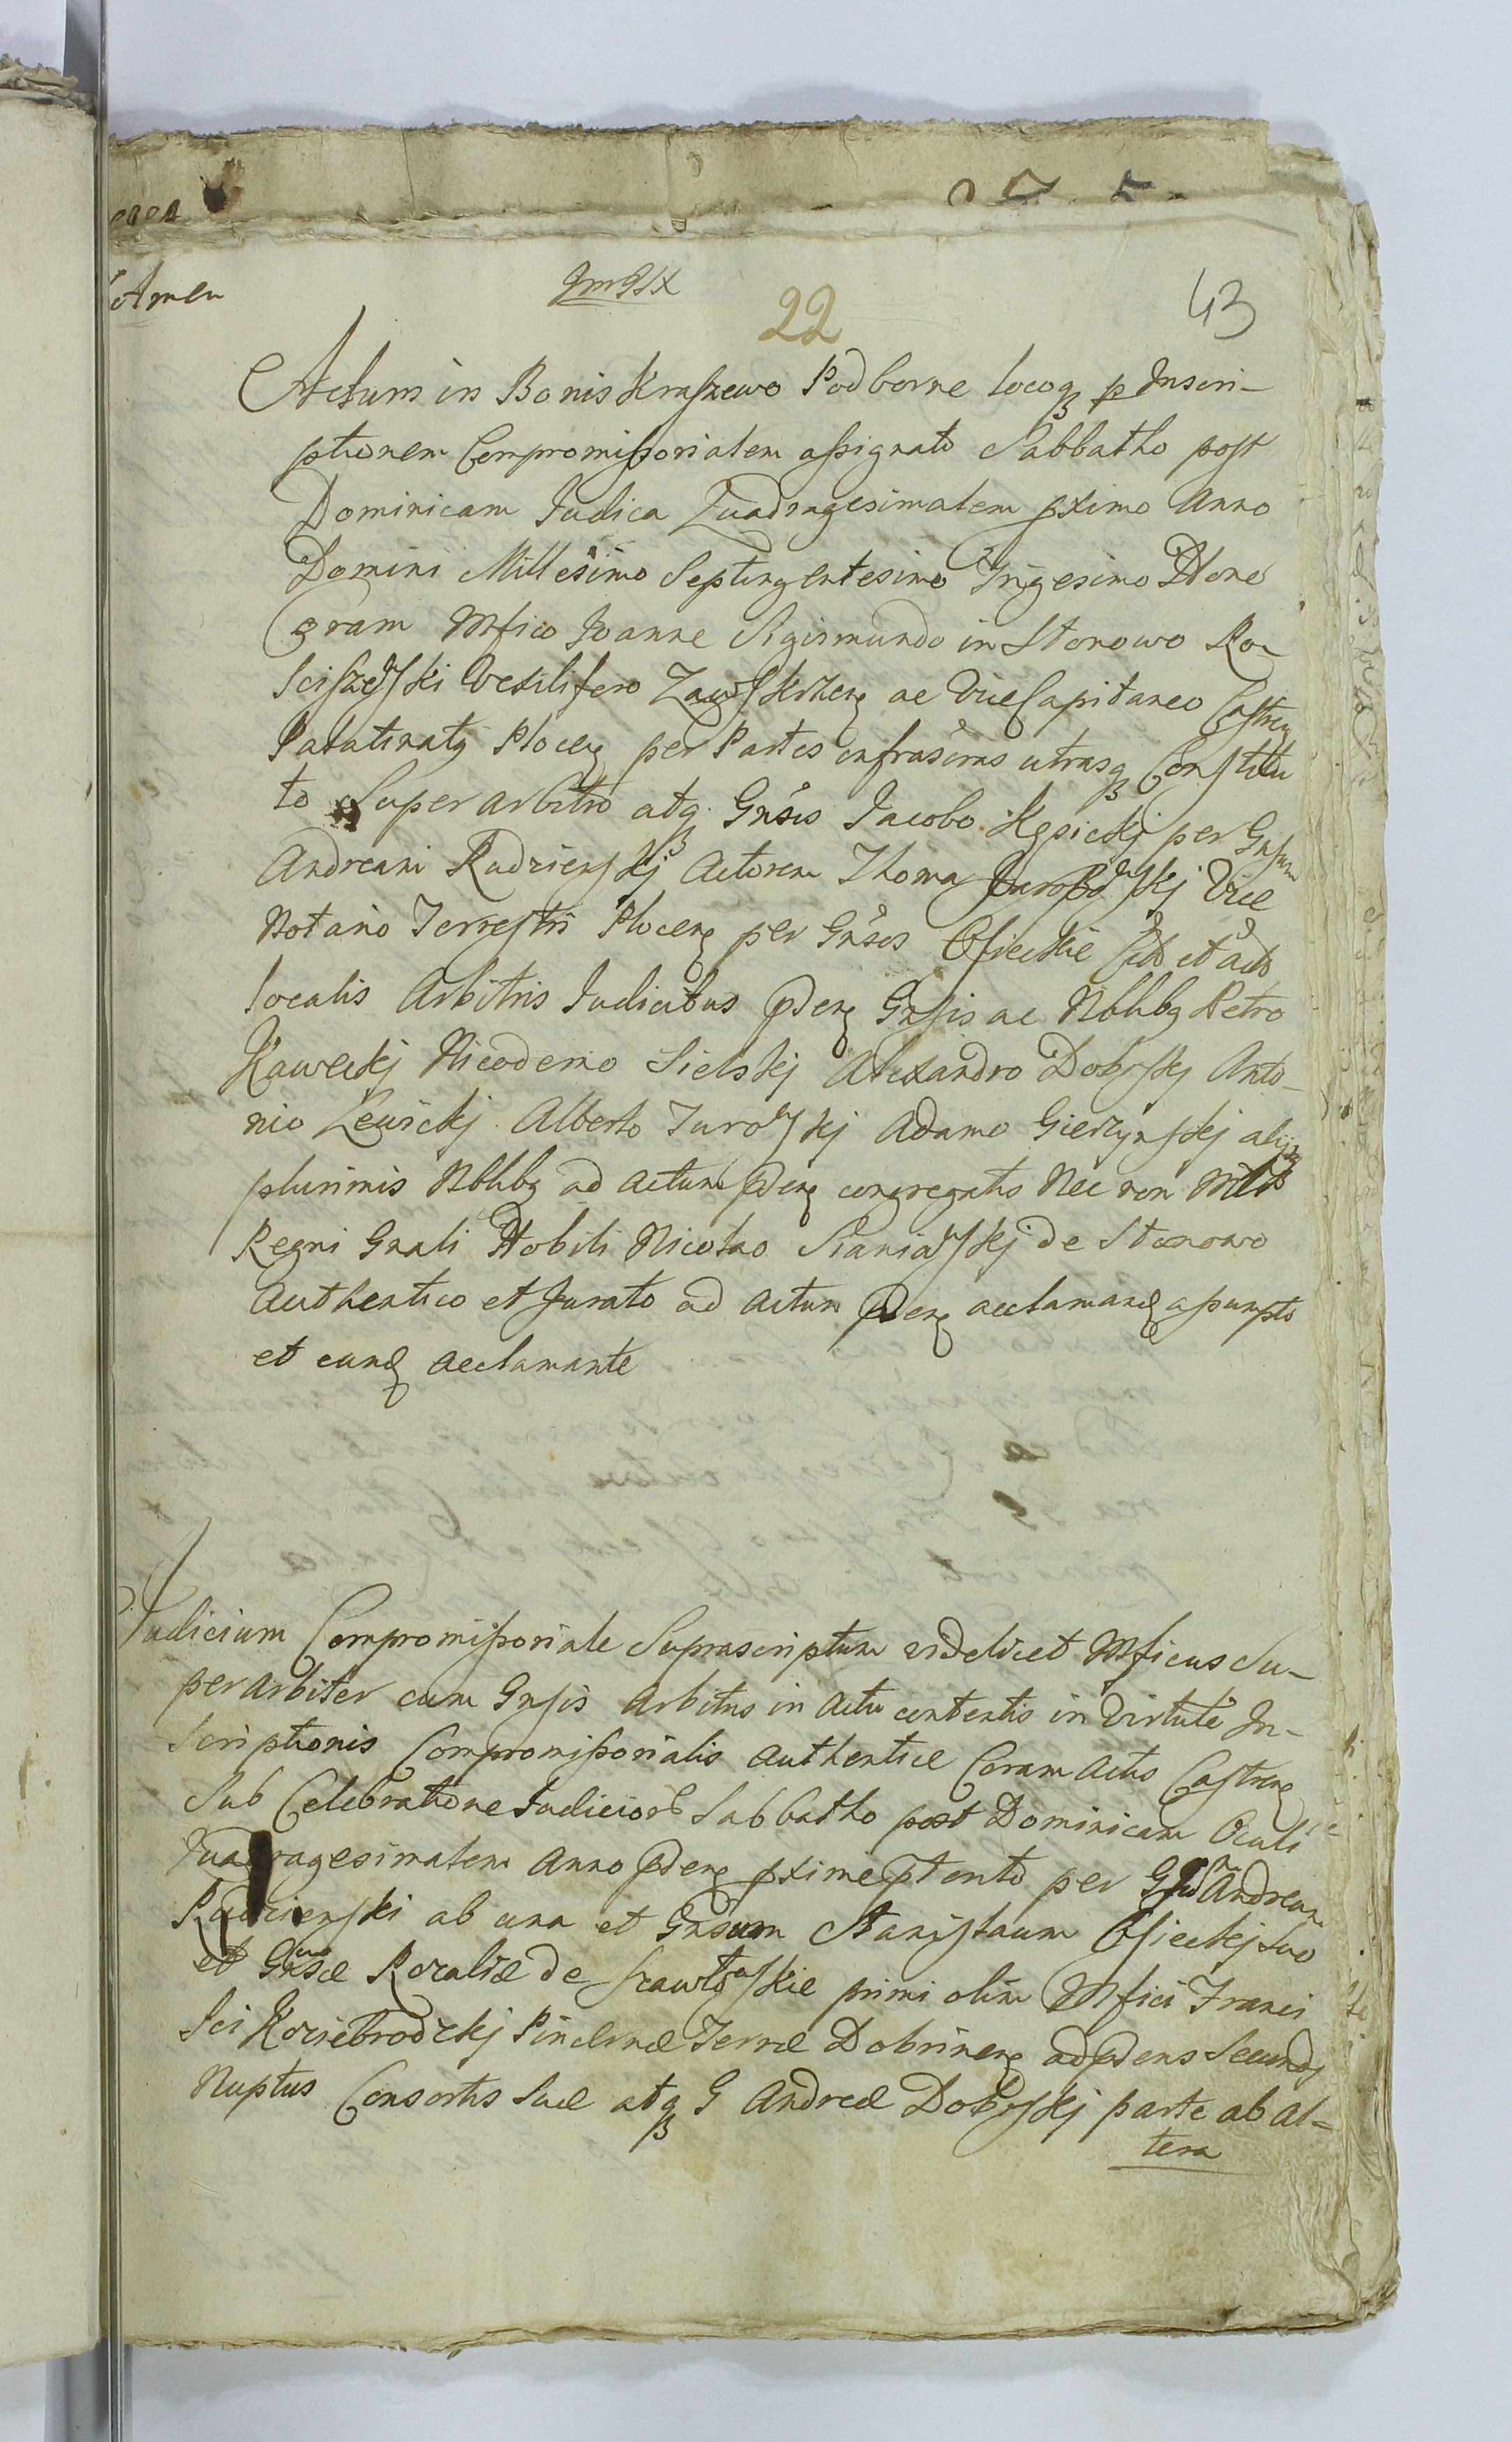 Amen
22
43
Actum in Bonis Kraszewo Podborne locoq₃ p Inscri-
ptionem Compromissorialem assignato Sabbatho post
Dominicam Iudica Quadragesimalem pximo Anno
Domini Millesimo Septingentesimo Trigesimo Nono
Coram Mfico Ioanne Sigismundo in Stonowo Ro-
sciszewski Vexilifero Zawskrzeng ac Vice Capitaneo Castren
Palatinatg Ploceng per Partes infrascras utrasq₃ Constitu
to Superarbitro atq₃ Gnsis Iacobo Kęsickj per Gnsum
Andream Rudzienskj Actorem Thoma Vice
Notario Terrestri Ploceng per Gnsos Osieckie et
localis Arbitris Iudicibus pdeng Gnsis ac Nblbg Petro
Kaweckj Nicodemo Sielskj Alexandro Dobrskj Anto-
nio Lewickj Alberto Turowskj Adamo Gierzynskj alijsq₃
plurimis Nblbg ad Actum pdeng congregatis Nec non
Regni Gnali Nobili Nicolao Staniawskj de Stonowo
Authentico et Jurato ad Actum pdeng acclamand assumpto
et eund acclamante
Iudicium Compromissoriale Suprascriptum videlicet Mficus Su-
perarbiter cum Gnsis Arbitris in Actu contentis in Virtute In-
scriptionis Compromissorialis Authentice Coram Actis Castreng
Sub Celebratione Iudicior Sabbatho post Dominicam Oculi
Quadragesimalem Anno pdeng pxime ptento per Andream
Rudzienski ab una et Gnsum Stanislaum Osieckj Suo
et Gnsæ Rozaliæ de primi olim Mfici Franci
sci Koziebrodzkj Pincernæ Terræ Dobrineng ad pdens Secundg
Nuptus Consortis Suæ atq₃ G Andreæ Dobrskj parte ab al=
tera